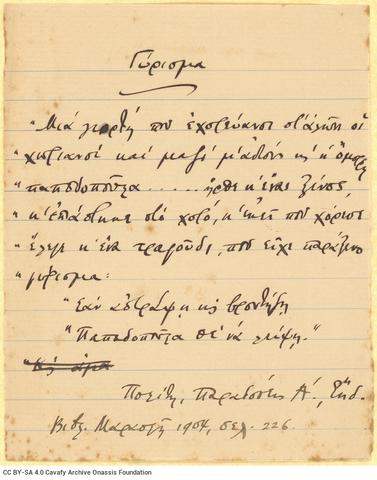 Γύρισμα
"Μιά γιορτή που εχορεύανε στ' αλώνι οι
" χωριανοί και μαζί μ' αυτούς κι' η όμορφη
" παπαδοπούλα ...... ήρθε κ' ένας ξένος,
" κ' επιάστηκε στο χορό, κ' εκεί που χόρευε
" έλεγε κ' ένα τραγούδι, που είχε παράξενο
" γύρισμα:
"Εάν αστράφη κη βροντήξη
"Παπαδοπούλα σε να λείψη."
"Κι άμα
Πολίτη, Παραδόσεις Α', Έκδ.
Βιβλ. Μαρασλή 1904, σελ. 226.
CC BY-SA 4.0 Cavafy Archive Onassis Foundation